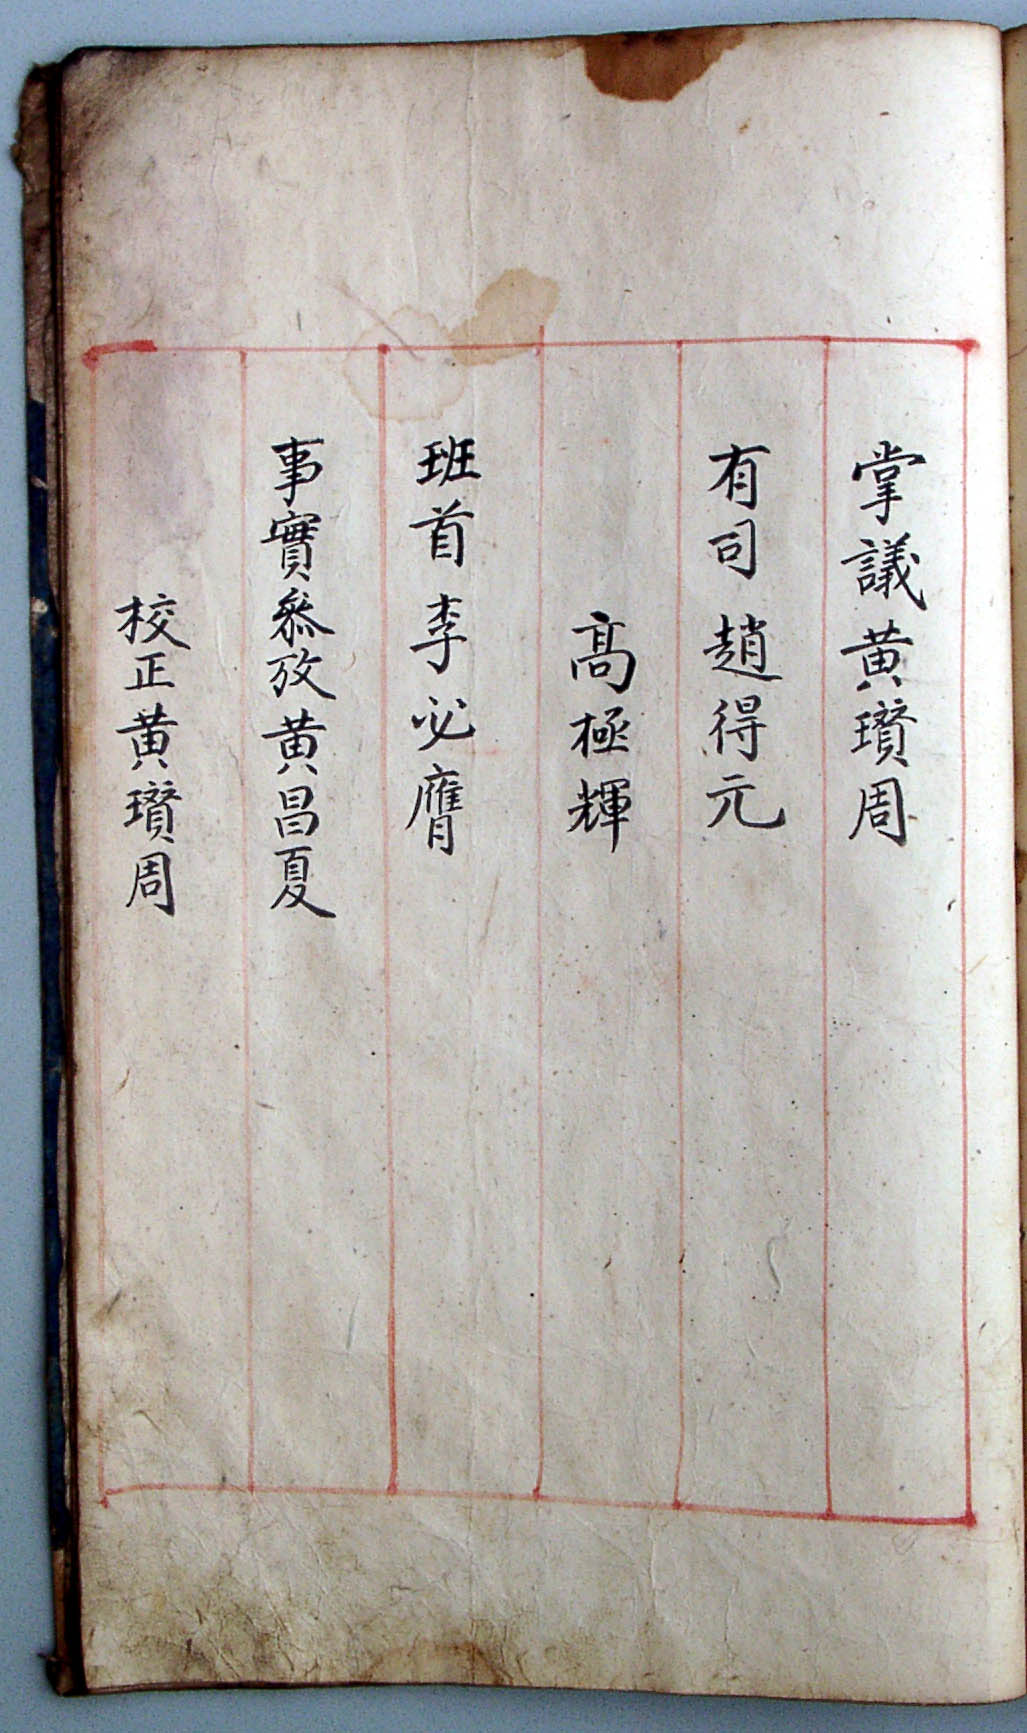 掌議黄瓚周
有司趙得元
高極輝
班首李必膺
事實叅攷黄昌夏
校正黄瓚周